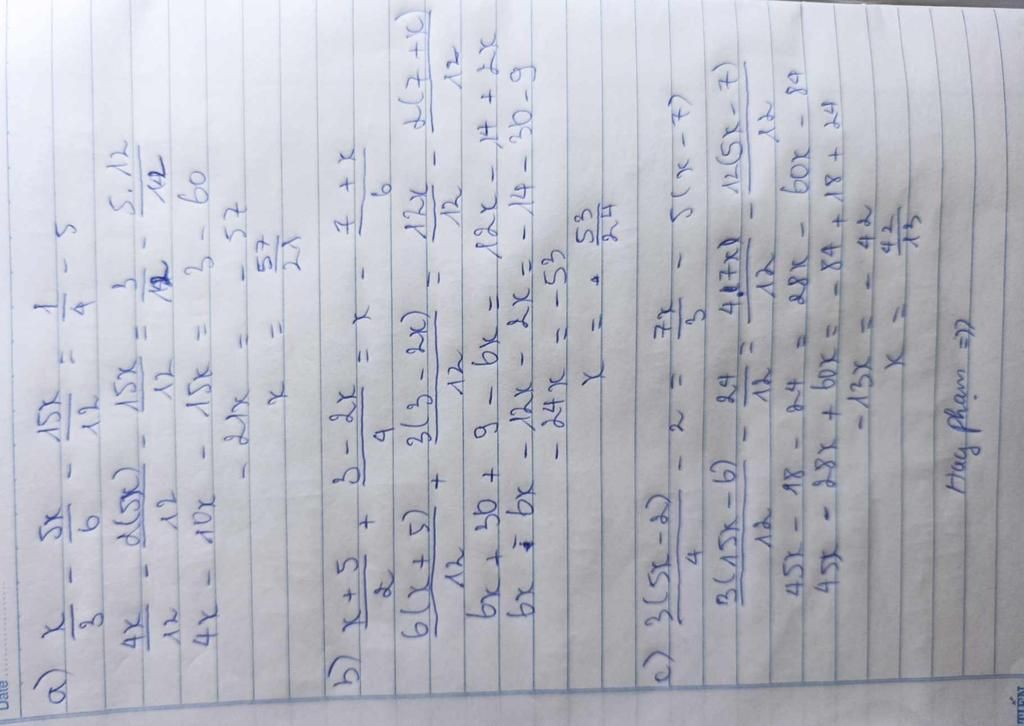 Date
a) x/3 - 5x/6 - 15x/12 = 1/4 - 5
4x/12 - 2(5x)/12 - 15x/12 = 3/12 - 5.12/12
4x - 10x - 15x = 3 - 60
- 21x = - 57
x = 57/21
b) x + 5/2 + 3 - 2x/4 = x - 7 + x/6
6(x + 5)/12 + 3(3 - 2x)/12 = 12x/12 - 2(7 + x)/12
6x + 30 + 9 - 6x = 12x - 14 + 2x
6x - 6x - 12x - 2x = - 14 - 30 - 9
- 24x = - 53
x = 53/24
c) 3(5x - 2)/4 - 2 = 7x/3 - 5(x - 7)
3(15x - 6)/12 - 24/12 = 4.(7x)/12 - 12(5x - 7)/12
45x - 18 - 24 = 28x - 60x - 84
45x - 28x + 60x = - 84 + 18 + 24
- 13x = - 42
x = 42/13
Hay pham =))